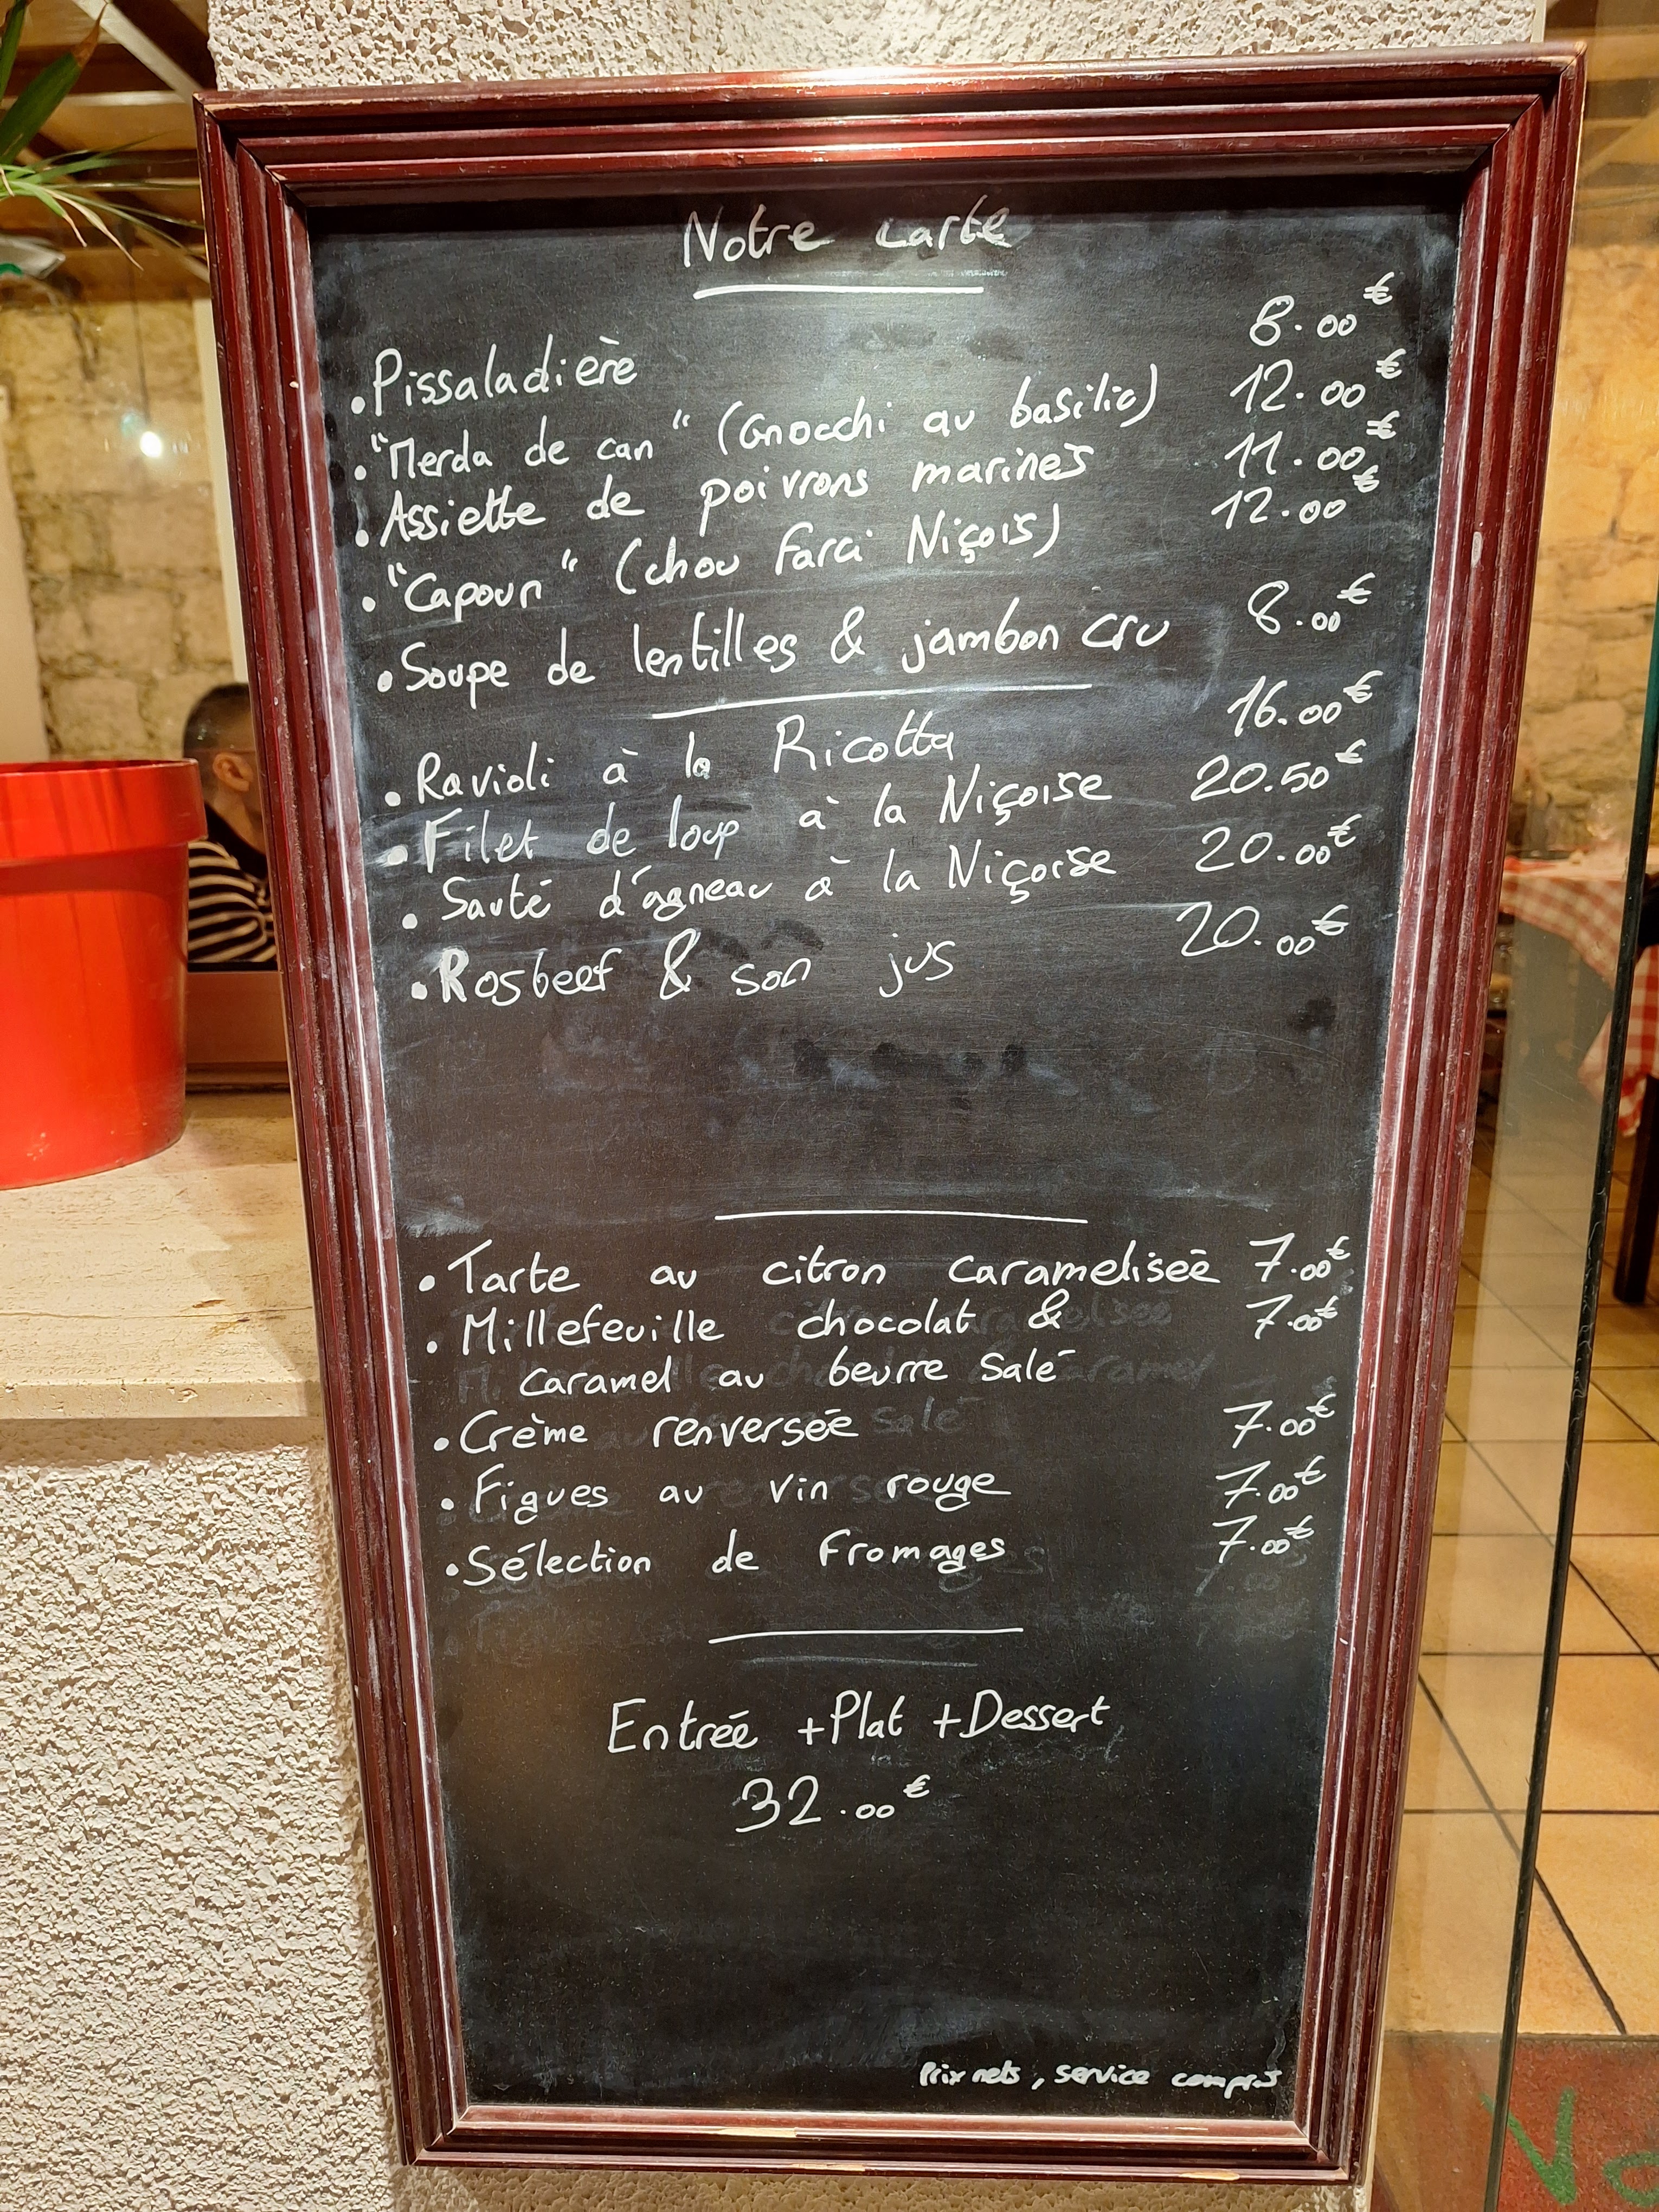 Notre carte
• Pissaladière 8.00€
• "Merda de can" (Gnocchi au basilic) 12.00€
• Assiette de poivrons marinés 11.00€
• "Capoun" (chou Farci Niçois) 12.00€
• Soupe de lentilles & jambon cru 8.00€
• Ravioli à la Ricotta 16.00€
• Filet de loup à la Niçoise 20.50€
• Sauté d'agneau à la Niçoise 20.00€
• Rosbeef & son jus 20.00€
• Tarte au citron Caramelisée 7.00€
• Millefeuille chocolat & 7.00€
Caramel au beurre Salé
• Crème renversée 7.00€
• Figues au vin rouge 7.00€
• Sélection de Fromages 7.00€
Entrée + Plat + Dessert
32.00€
Prix nets, service compris